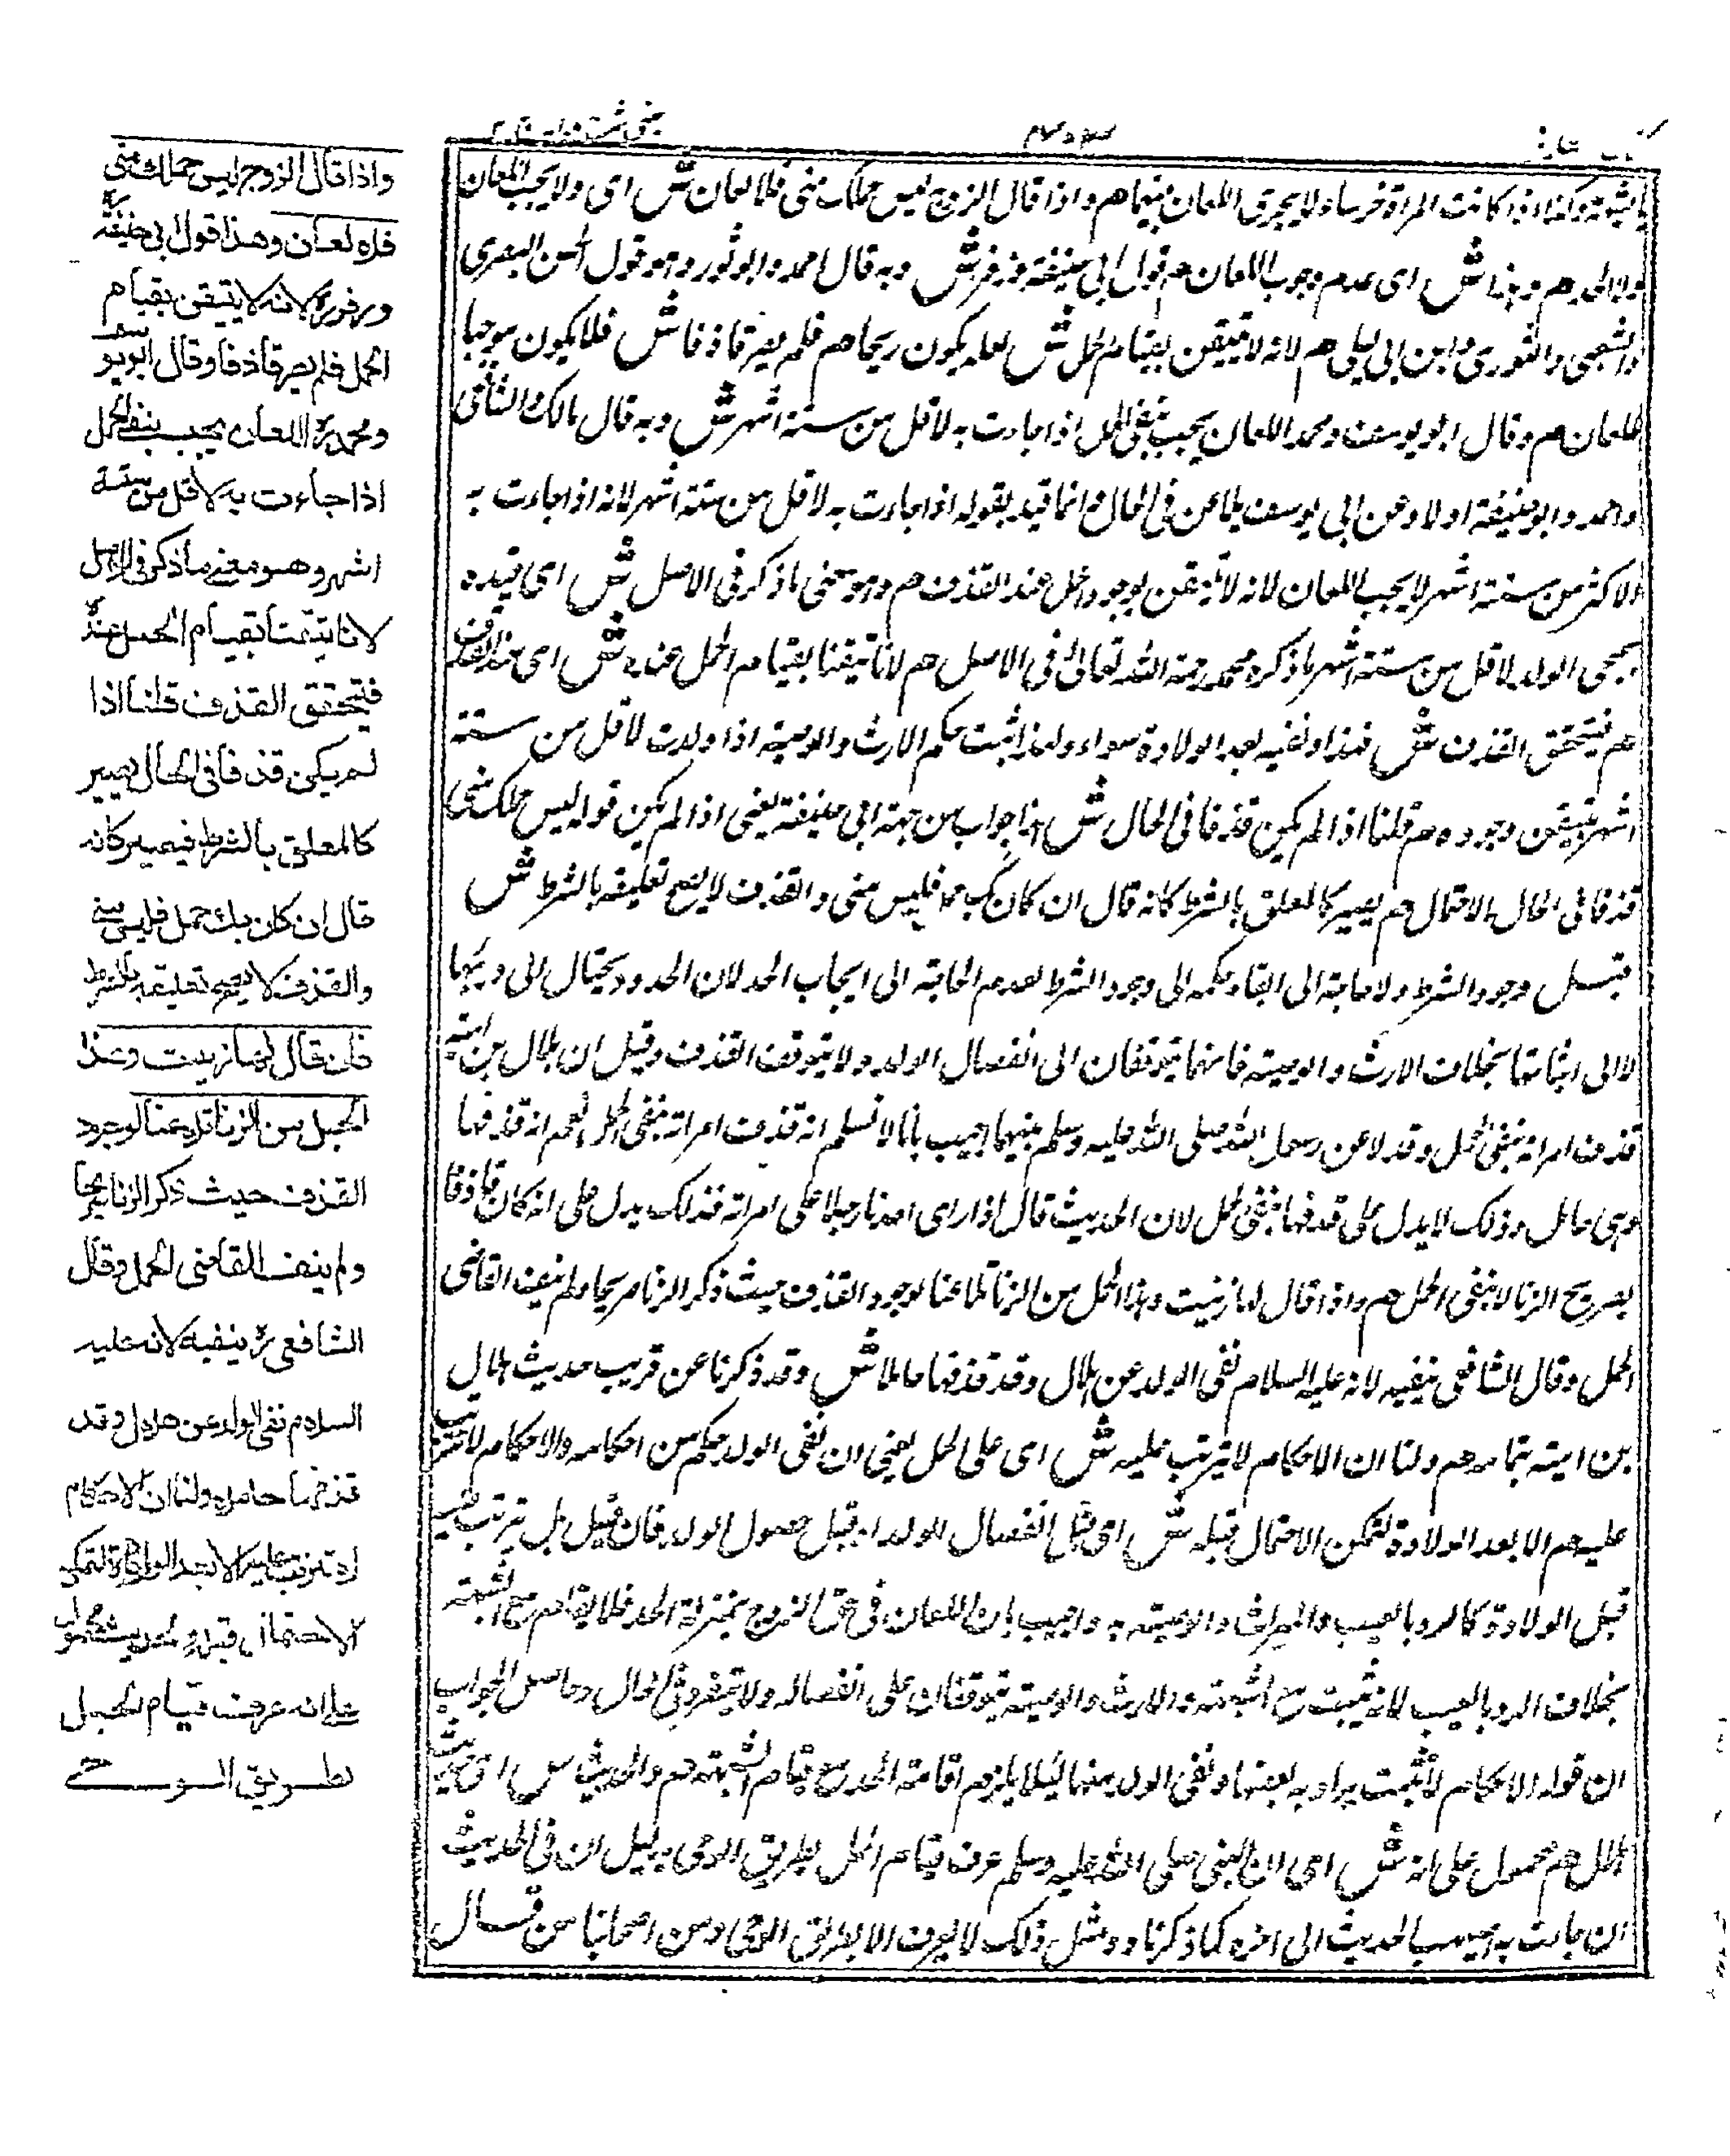 بالشبهة وكذا اذا كانت المرأة خرساء لا يجرى اللعان بينهما هم واذا قال الزوج ليس حملك منى فلا لعان ش اى ولا يجب اللعان
ولا الحد هم وهذا ش اى عدم وجوب اللعان هم قول ابى حنيفة وزفر ش وبه قال احمد وابو ثور وهو قول الحسن البصرى
والشعبى والثورى وابن ابى ليلى هم لانه لا يتيقن بقيام الحمل ش لعله يكون ريحا هم فلم يصر قاذفا ش فلا يكون موجبا
للعان هم وقال ابو يوسف ومحمد اللعان يجب بنفى الحمل اذا جاءت به لاقل من ستة اشهر ش وبه قال مالك والشافعى
واحمد وابو حنيفة اولا وعن ابى يوسف يلاعن فى الحال وانما قيد بقوله اذا جاءت به لاقل من ستة اشهر لانه اذا جاءت به
لاكثر من ستة اشهر لا يجب اللعان لانه لا يتيقن بوجود الحمل عند القذف هم وهو معنى ما ذكر فى الاصل ش اى قيده
بمجى الولد لاقل من ستة اشهر ما ذكره محمد رحمة الله تعالى فى الاصل هم لانا تيقنا بقيام الحمل عنده ش اى عند القذف
هم فيتحقق القذف ش فهذا ونفيه بعد الولادة سواء ولهذا ثبت حكم الارث والوصية اذا ولدت لاقل من ستة
اشهر لتيقن وجوده هم قلنا اذا لم يكن قذفا فى الحال ش هذا جواب من جهة ابى حنيفة يعنى اذا لم يكن قوله ليس حملك منى
قذفا فى الحال لاحتمال هم يصير كالمعلق بالشرط كانه قال ان كان بك حمل فليس منى والقذف لا يصح تعليقه بالشرط ش
قبل وجود الشرط ولا حاجة الى ابقاء حكمه الى وجود الشرط لعدم الحاجة الى ايجاب الحد لان الحدود يحتال الى درئها
لا الى اثباتها بخلاف الارث والوصية فانهما يتوقفان الى انفصال الولد ولا يتوقف القذف وقيل ان هلال بن امية
قذف امراته بنفى الحمل وقد لاعن رسول الله صلى الله عليه وسلم بينهما اجيب بانا لا نسلم انه قذف امراته بنفى الحمل نعم انه قذفها
وهى حامل وذلك لا يدل على قذفها بنفى الحمل لان الحديث قال اذا راى احدنا رجلا على امراته فذلك يدل على انه كان قاذفا
بصريح الزنا لا بنفى الحمل هم واذا قال لها زنيت وهذا الحمل من الزنا تلاعنا لوجود القذف حيث ذكر الزنا صريحا ولم ينف القاضى
الحمل وقال الشافعى ينفيه لانه عليه السلام نفى الولد عن هلال وقد قذفها حاملا ش وقد ذكرنا عن قريب حديث هلال
بن امية بتمامه هم ولنا ان الاحكام لا يترتب عليه ش اى على الحمل يعنى ان نفى الولد حكم من احكامه والاحكام لا تترتب
عليه هم الا بعد الولادة لتمكن الاحتمال قبله ش اى قبل انفصال الولد او قبل حصول الولد فان قيل بل يترتب عليه
قبل الولادة كالرد بالعيب والميراث والوصية به واجيب بان اللعان فى حق الزوج بمنزلة الحد فلا يقام مع الشبهة
بخلاف الرد بالعيب لانه يثبت مع الشبهة والارث والوصية يتوقفان على انفصاله ولا يتقرر فى الحال وحاصل الجواب
ان قوله الاحكام لا تثبت يراد به بعضها ونفى الولد منها ليلا يلزم اقامة الحد مع قيام الشبهة هم والحديث ش اى حديث
هلال هم محمول على انه ش اى ان النبى صلى الله عليه وسلم عرف قيام الحمل بطريق الوحى بدليل ان فى الحديث
ان جاءت به اصيهب الحديث الى اخره كما ذكرنا ومثل ذلك لا يعرف الا بطريق الوحى ومن اصحابنا من قال
واذا قال الزوج ليس حملك منى
فلا لعان وهذا قول ابى حنيفة
وزفر لانه لا يتيقن بقيام
الحمل فلم يصر قاذفا وقال ابو يو
ومحمد اللعان يجب بنفى الحمل
اذا جاءت به لاقل من ستة
اشهر وهو معنى ما ذكر فى الاصل
لانا تيقنا بقيام الحمل عنده
فيتحقق القذف قلنا اذا
لم يكن قذفا فى الحال يصير
كالمعلق بالشرط فيصير كانه
قال ان كان بك حمل فليس منى
والقذف لا يصح تعليقه بالشرط
فان قال لها زنيت وهذا
الحبل من الزنا تلاعنا لوجود
القذف حيث ذكر الزنا صريحا
ولم ينف القاضى الحمل وقال
الشافعى ينفيه لانه عليه
السلام نفى الولد عن هلال وقد
قذفها حاملا ولنا ان الاحكام
لا تترتب عليه الا بعد الولادة لتمكن
الاحتمال قبله والحديث محمول
على انه عرف قيام الحبل
بطريق الوحى